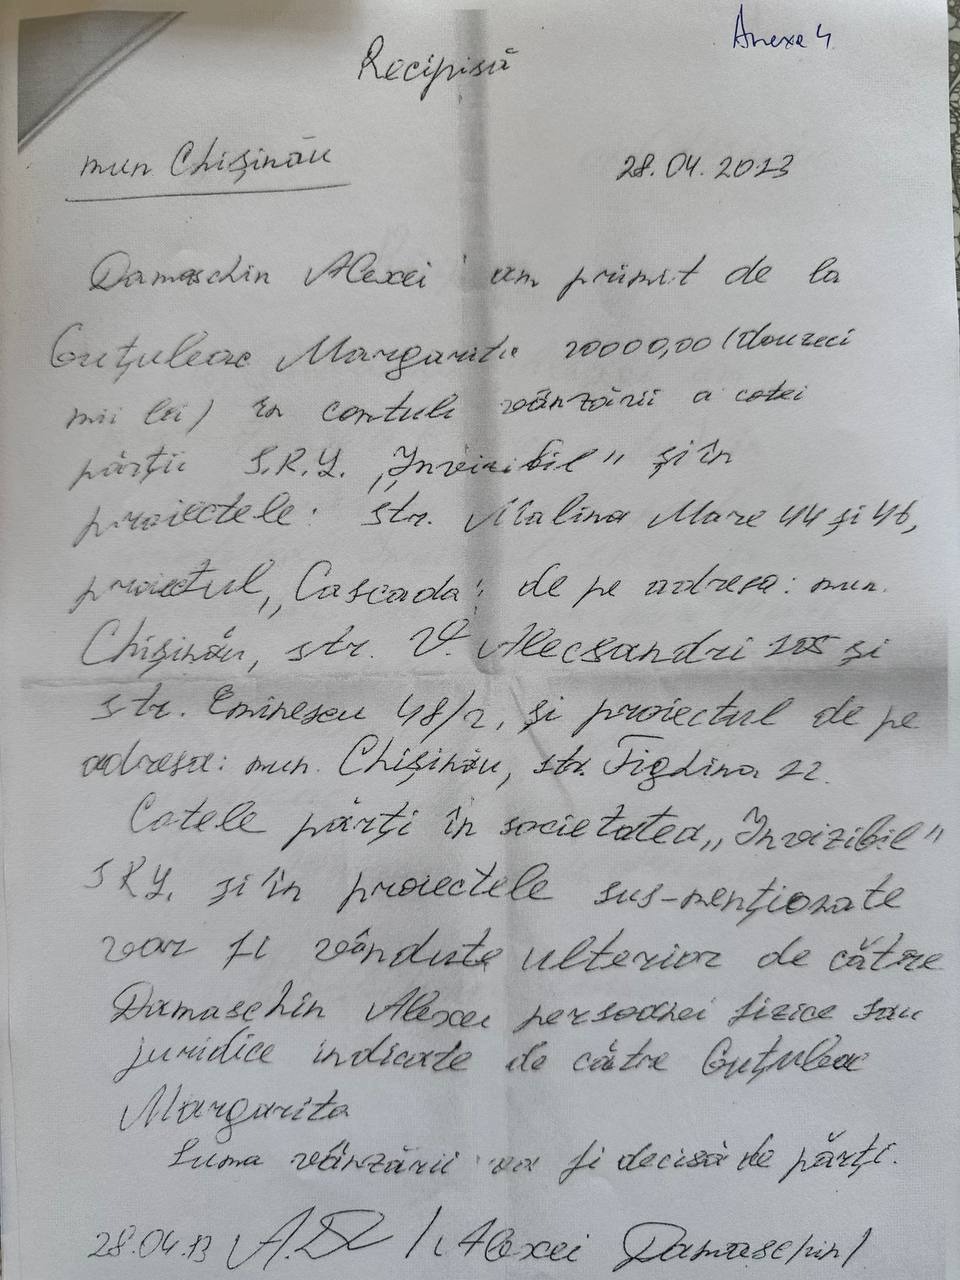 Anexa 4
Recipisă
mun Chișinău 28.04.2013
Damaschin Alexei am primit de la
Guțuleac Margarita 20000,00 (douzeci
mii lei) în contul vânzării a cotei
părții S.R.L. „Invizibil" și în
proiectele: str. Malina Mare 44 și 46,
proiectul „Cascada" de pe adresa: mun.
Chișinău, str. V. Alecsandri 105 și
str. Eminescu 48/2, și proiectul de pe
adresa: mun. Chișinău, str. Tighina 22.
Cotele părți în societatea „Invizibil"
SRL, și în proiectele sus-menționate
vor fi vândute ulterior de către
Damaschin Alexei persoanei fizice sau
juridice indicate de către Guțuleac
Margarita
Suma vânzării va fi decisă de părți.
28.04.13 /Alexei Damaschin/